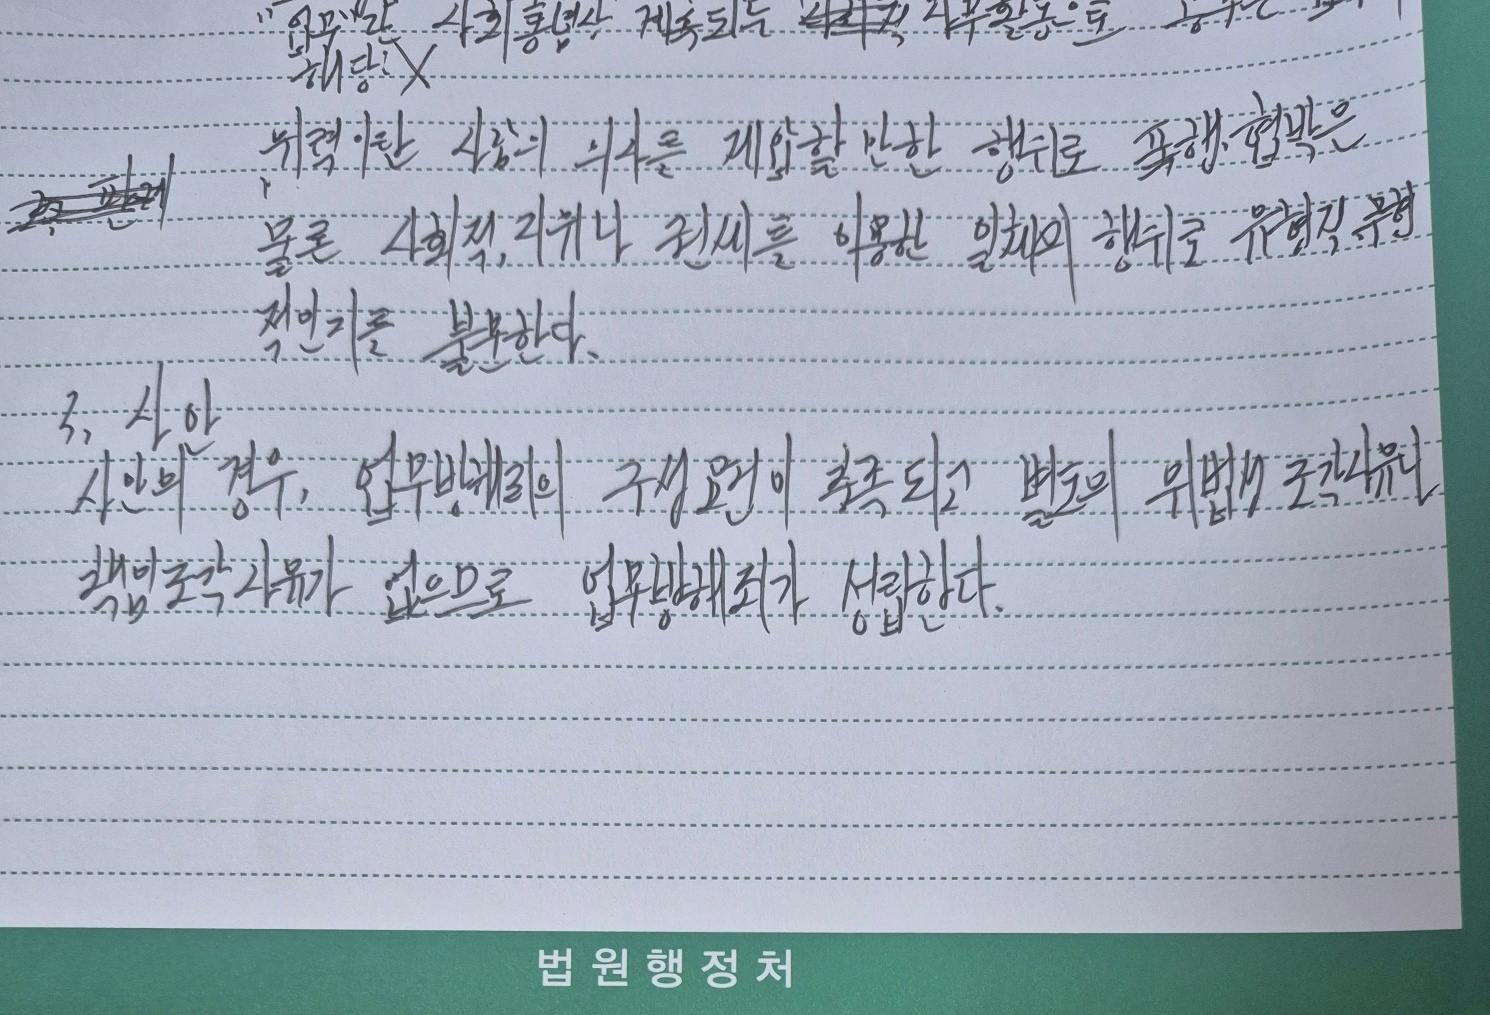 "업무"란 사회통념상 계속되는 사무활동으로 공무는
해당 X
위력이란 사람의 의사를 제압할 만한 행위로 폭행, 협박은
물론 사회적, 지위나 권세를 이용한 일체의 행위로 유형적, 무형
적인지를 불문한다.
3. 사안
사안의 경우, 업무방해죄의 구성요건이 충족되고 별도의 위법성조각사유나
책임조각사유가 없으므로 업무방해죄가 성립한다.
법원행정처